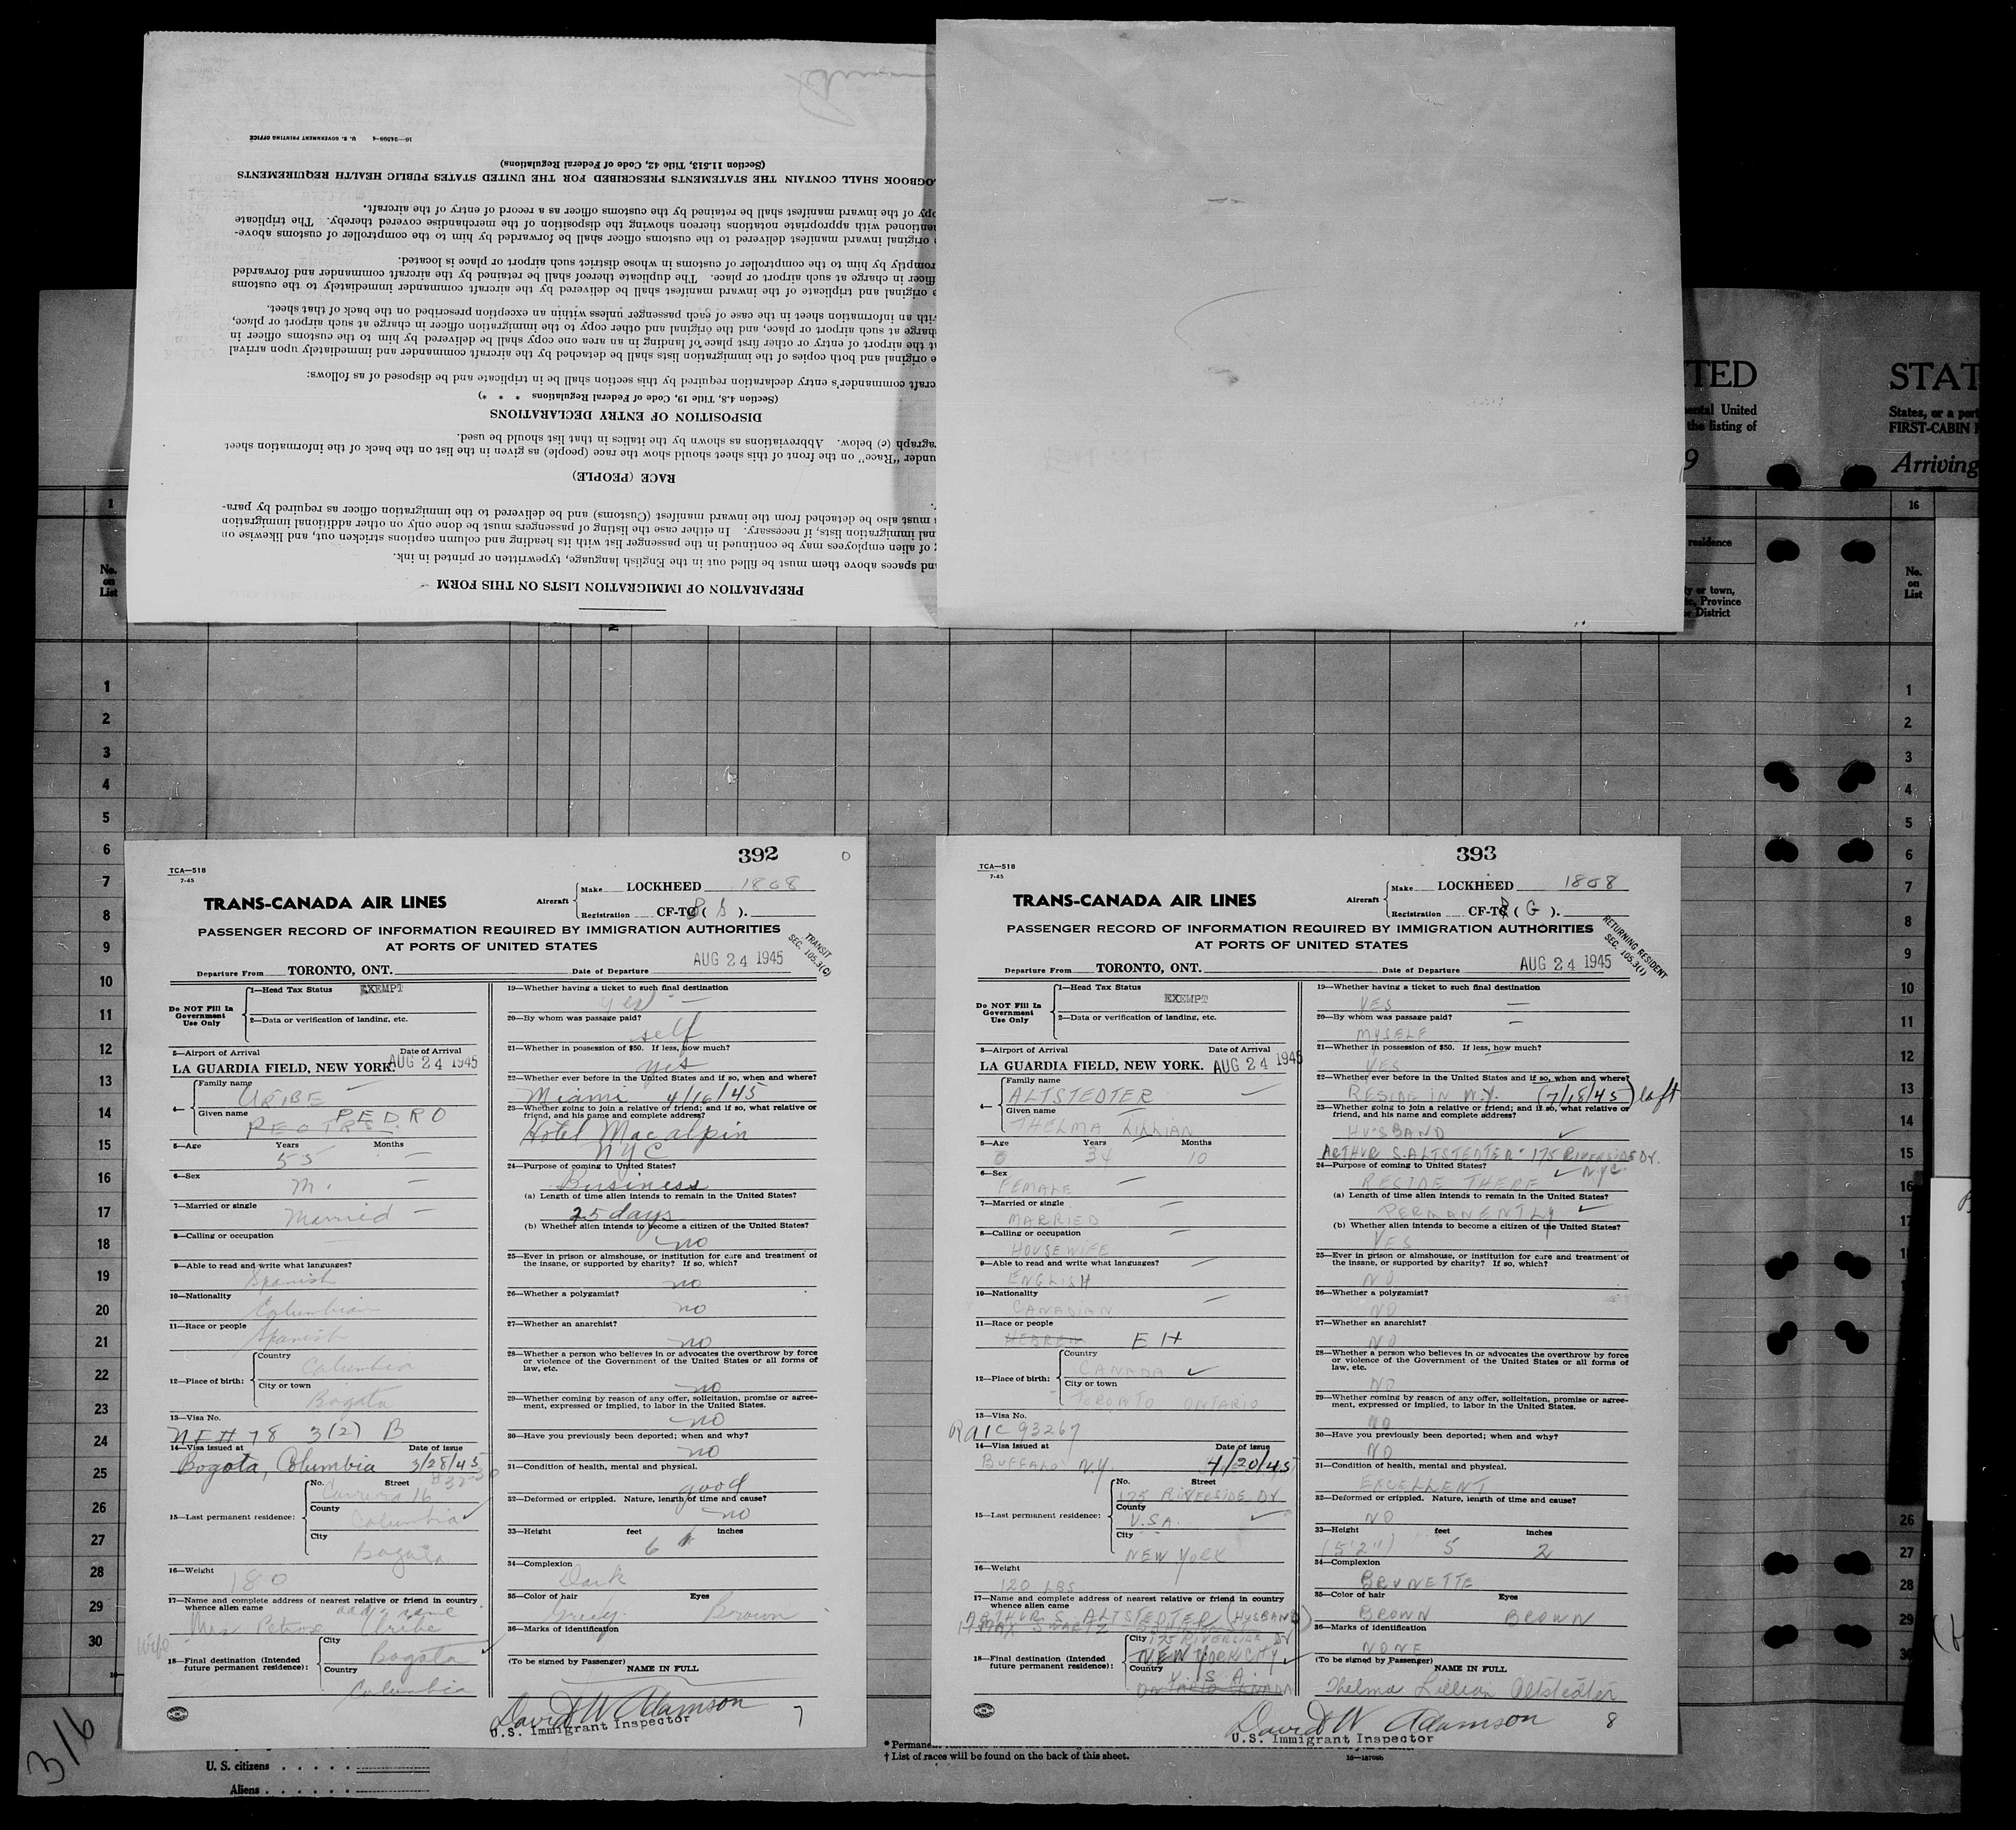 16—24508-4 U. S. GOVERNMENT PRINTING OFFICE
(Section 11.513, Title 42, Code of Federal Regulations)
LOGBOOK SHALL CONTAIN THE STATEMENTS PRESCRIBED FOR THE UNITED STATES PUBLIC HEALTH REQUIREMENTS
opy of the inward manifest shall be retained by the customs officer as a record of entry of the aircraft.
mentioned with appropriate notations thereon showing the disposition of the merchandise covered thereby. The triplicate
original inward manifest delivered to the customs officer shall be forwarded by him to the comptroller of customs above-
promptly by him to the comptroller of customs in whose district such airport or place is located.
officer in charge at such airport or place. The duplicate thereof shall be retained by the aircraft commander and forwarded
e original and triplicate of the inward manifest shall be delivered by the aircraft commander immediately to the customs
with an information sheet in the case of each passenger unless within an exception prescribed on the back of that sheet.
charge at such airport or place, and the original and other copy to the immigration officer in charge at such airport or place,
at the airport of entry or other first place of landing in an area one copy shall be delivered by him to the customs officer in
e original and both copies of the immigration lists shall be detached by the aircraft commander and immediately upon arrival
craft commander's entry declaration required by this section shall be in triplicate and be disposed of as follows:
(Section 4.8, Title 19, Code of Federal Regulations * * *)
DISPOSITION OF ENTRY DECLARATIONS
agraph (c) below. Abbreviations as shown by the italics in that list should be used.
under "Race" on the front of this sheet should show the race (people) as given in the list on the back of the information sheet
RACE (PEOPLE)
must also be detached from the inward manifest (Customs) and be delivered to the immigration officer as required by para-
nal immigration lists, if necessary. In either case the listing of passengers must be done only on other additional immigration
of alien employees may be continued in the passenger list with its heading and column captions stricken out, and likewise on
and spaces above them must be filled out in the English language, typewritten or printed in ink.
PREPARATION OF IMMIGRATION LISTS ON THIS FORM
TED
ental United
the listing of
9
residence
y or town,
Province
District
STAT
States, or a port
FIRST-CABIN
Arriving
16
No. on List
1
No. on List
1
2
3
4
5
6
7
8
9
10
11
12
13
14
15
16
17
18
19
20
21
22
23
24
25
26
27
28
29
30
392
TCA—518
7-45
TRANS-CANADA AIR LINES
Aircraft
Make LOCKHEED 1808
Registration CF-TC ( S ).
PASSENGER RECORD OF INFORMATION REQUIRED BY IMMIGRATION AUTHORITIES
AT PORTS OF UNITED STATES
TRANSIT
SEC. 105.3(C)
Departure From TORONTO, ONT. Date of Departure AUG 24 1945
Do NOT Fill In Government Use Only
1—Head Tax Status EXEMPT
2—Data or verification of landing, etc.
3—Airport of Arrival Date of Arrival
LA GUARDIA FIELD, NEW YORK. AUG 24 1945
4—
Family name URIBE
Given name PEDRO
5—Age Years Months
55 —
6—Sex M. —
7—Married or single Married —
8—Calling or occupation
9—Able to read and write what languages?
Spanish
10—Nationality
Columbian
11—Race or people
Spanish
12—Place of birth:
Country Columbia
City or town Bogota
13—Visa No.
NI # 78 3(2) B
14—Visa issued at Date of issue
Bogota, Columbia 3/28/45
15—Last permanent residence:
No. Street Carrera 16
County Columbia
City Bogota
16—Weight
180
17—Name and complete address of nearest relative or friend in country whence alien came
addr same
Wife Mrs Uribe
18—Final destination (Intended future permanent residence):
City Bogota
Country Columbia
19—Whether having a ticket to such final destination
yes —
20—By whom was passage paid?
self
21—Whether in possession of $50. If less, how much?
yes
22—Whether ever before in the United States and if so, when and where?
Miami 4/16/45
23—Whether going to join a relative or friend; and if so, what relative or friend, and his name and complete address?
Hotel Macalpin
NYC
24—Purpose of coming to United States?
Business
(a) Length of time alien intends to remain in the United States?
25 days
(b) Whether alien intends to become a citizen of the United States?
no
25—Ever in prison or almshouse, or institution for care and treatment of the insane, or supported by charity? If so, which?
no
26—Whether a polygamist?
no
27—Whether an anarchist?
no
28—Whether a person who believes in or advocates the overthrow by force or violence of the Government of the United States or all forms of law, etc.
no
29—Whether coming by reason of any offer, solicitation, promise or agreement, expressed or implied, to labor in the United States.
no
30—Have you previously been deported; when and why?
no
31—Condition of health, mental and physical.
good
32—Deformed or crippled. Nature, length of time and cause?
no
33—Height feet inches
6
34—Complexion
Dark
35—Color of hair Eyes
Grey Brown
36—Marks of identification
(To be signed by Passenger) NAME IN FULL
David W Adamson
U.S. Immigrant Inspector
7
393
TCA—518
7-45
TRANS-CANADA AIR LINES
Aircraft
Make LOCKHEED 1808
Registration CF-TC ( G ).
PASSENGER RECORD OF INFORMATION REQUIRED BY IMMIGRATION AUTHORITIES
AT PORTS OF UNITED STATES
RETURNING RESIDENT
SEC. 105.3(1)
Departure From TORONTO, ONT. Date of Departure AUG 24 1945
Do NOT Fill In Government Use Only
1—Head Tax Status
EXEMPT
2—Data or verification of landing, etc.
3—Airport of Arrival Date of Arrival
LA GUARDIA FIELD, NEW YORK. AUG 24 1945
4—
Family name
ALTSTEDTER
Given name
THELMA LILLIAN
5—Age Years Months
34 10
6—Sex
FEMALE
7—Married or single
MARRIED
8—Calling or occupation
HOUSEWIFE
9—Able to read and write what languages?
ENGLISH
10—Nationality
CANADIAN
11—Race or people
HEBREW EH
12—Place of birth:
Country
CANADA
City or town
TORONTO ONTARIO
13—Visa No.
RAIC 93267
14—Visa issued at Date of issue
BUFFALO N.Y. 4/20/45
15—Last permanent residence:
No. Street
175 RIVERSIDE DR
County
U.S.A.
City
NEW YORK
16—Weight
120 LBS.
17—Name and complete address of nearest relative or friend in country whence alien came
ARTHUR S. ALTSTEDTER (HUSBAND)
MAX SWARTZ
175 RIVERSIDE DR
18—Final destination (Intended future permanent residence):
City
NEW YORK CITY
Country
U. S. A.
ONTARIO CANADA
19—Whether having a ticket to such final destination
YES —
20—By whom was passage paid?
MYSELF
21—Whether in possession of $50. If less, how much?
YES
22—Whether ever before in the United States and if so, when and where?
RESIDE IN N.Y. (7/18/45) left
23—Whether going to join a relative or friend; and if so, what relative or friend, and his name and complete address?
HUSBAND
ARTHUR S. ALTSTEDTER - 175 RIVERSIDE DR.
NYC
24—Purpose of coming to United States?
RESIDE THERE
(a) Length of time alien intends to remain in the United States?
PERMANENTLY
(b) Whether alien intends to become a citizen of the United States?
YES
25—Ever in prison or almshouse, or institution for care and treatment of the insane, or supported by charity? If so, which?
NO
26—Whether a polygamist?
NO
27—Whether an anarchist?
NO
28—Whether a person who believes in or advocates the overthrow by force or violence of the Government of the United States or all forms of law, etc.
NO
29—Whether coming by reason of any offer, solicitation, promise or agreement, expressed or implied, to labor in the United States.
NO
30—Have you previously been deported; when and why?
NO
31—Condition of health, mental and physical.
EXCELLENT
32—Deformed or crippled. Nature, length of time and cause?
NO
33—Height feet inches
(5'2") 5 2
34—Complexion
BRUNETTE
35—Color of hair Eyes
BROWN BROWN
36—Marks of identification
NONE
(To be signed by Passenger) NAME IN FULL
Thelma Lillian Altstedter
David W Adamson
U.S. Immigrant Inspector
8
316
U. S. citizens
Aliens
* Permane
† List of races will be found on the back of this sheet.